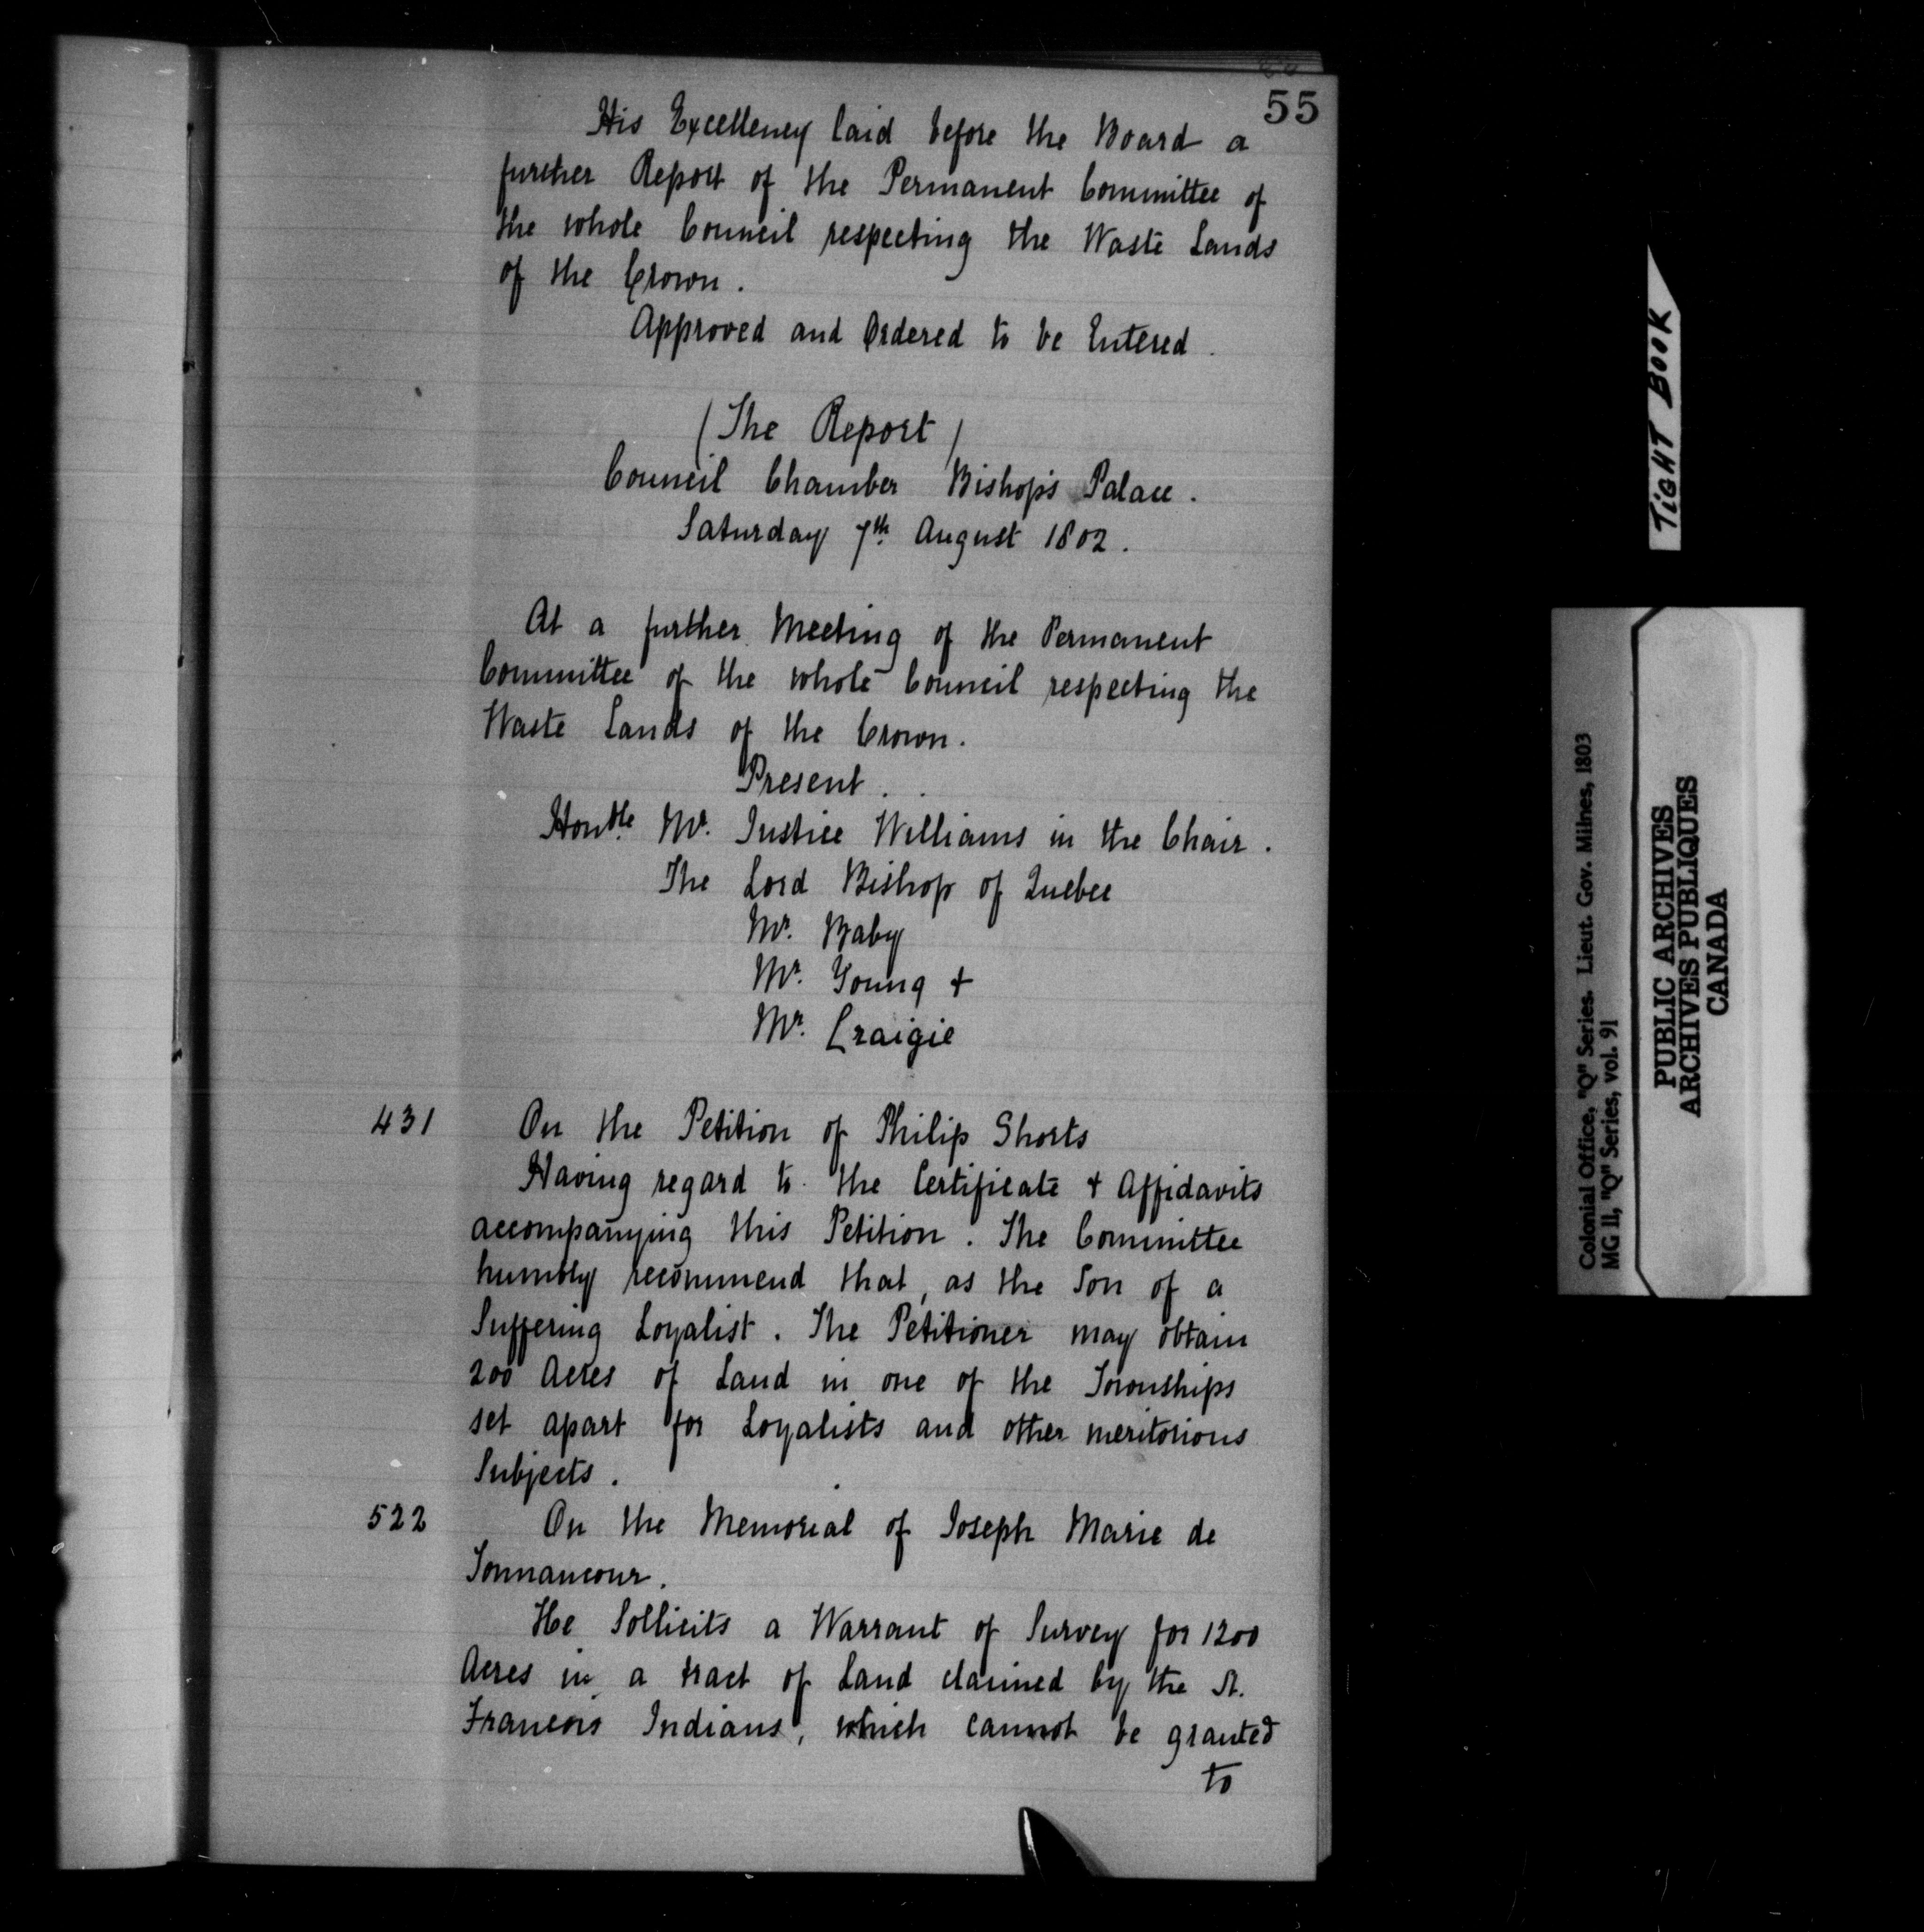 55
His Excellency laid before the Board a
further Report of the Permanent Committee of
the whole Council respecting the Waste Lands
of the Crown.
Approved and Ordered to be Entered.
(The Report)
Council Chamber Bishop's Palace.
Saturday 7th August 1802.
At a further Meeting of the Permanent
Committee of the whole Council respecting the
Waste Lands of the Crown.
Present.
Honble Mr. Justice Williams in the Chair.
The Lord Bishop of Quebec
Mr. Baby
Mr. Young +
Mr. Craigie
431 On the Petition of Philip Shorts
Having regard to the Certificate + Affidavits
accompanying this Petition. The Committee
humbly recommend that, as the Son of a
Suffering Loyalist. The Petitioner may obtain
200 Acres of Land in one of the Townships
set apart for Loyalists and other meritorious
Subjects.
522 On the Memorial of Joseph Marie de
Tonnancour.
He Sollicits a Warrant of Survey for 1200
Acres in a tract of Land claimed by the St.
Francois Indians, which cannot be granted
to
TIGHT BOOK
Colonial Office, "Q" Series. Lieut. Gov. Milnes, 1803
MG 11, "Q" Series, vol. 91
PUBLIC ARCHIVES
ARCHIVES PUBLIQUES
CANADA